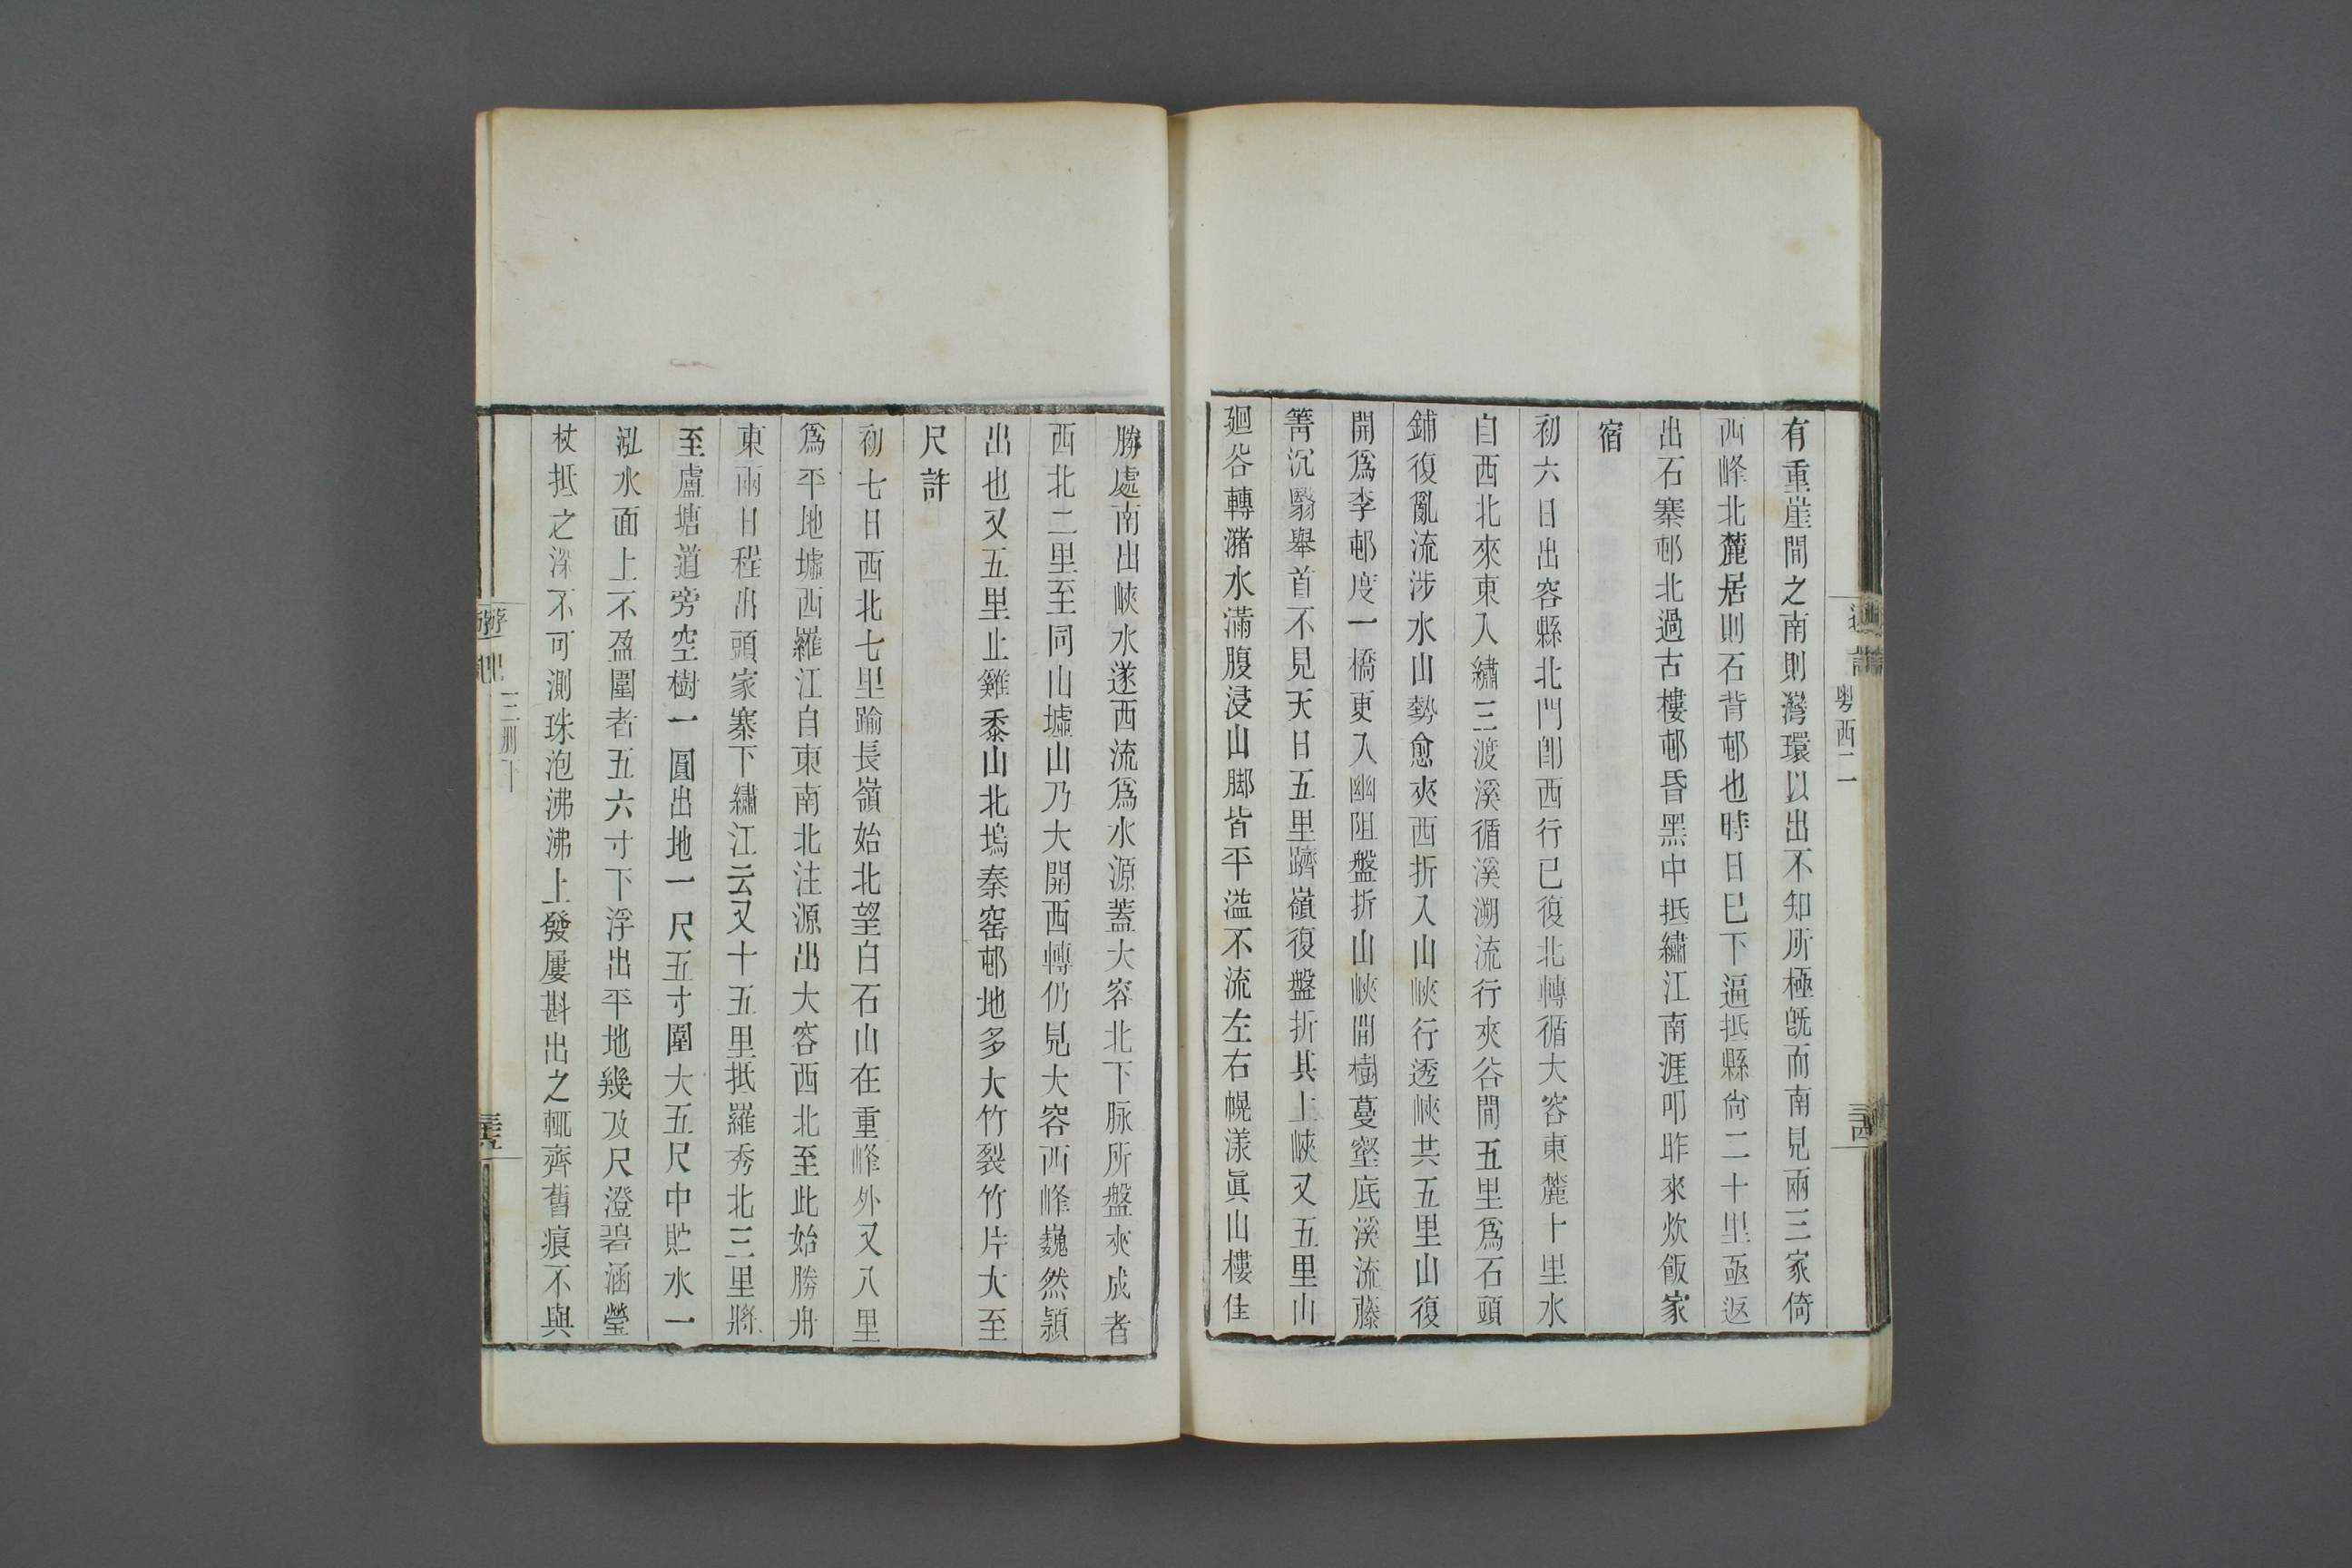 粤西二
有重崖間之南則灣環以出不知所極旣而南見兩三家倚
西峰北麓居則石背邨也時日已下逼抵縣尙二十里亟返
出石寨邨北過古樓邨昏黑中抵繡江南涯叩昨來炊飯家
宿
初六日出容縣北門卽西行已復北轉循大容東麓十里水
自西北來東入繡三渡溪循溪溯流行夾谷間五里爲石頭
鋪復亂流涉水山勢愈夾西折入山峽行透峽共五里山復
開爲李邨度一橋更入幽阻盤折山峽間樹蔓壑底溪流藤
箐沉翳舉首不見天日五里躋嶺復盤折其上峽又五里山
廻谷轉瀦水滿腹浸山脚皆平溢不流左右幌漾眞山樓佳
勝處南出峽水遂西流爲水源蓋大容北下脉所盤夾成者
西北二里至同山墟山乃大開西轉仍見大容西峰巍然頴
出也又五里止雞黍山北塢秦窑邨地多大竹裂竹片大至
尺許
初七日西北七里踰長嶺始北望白石山在重峰外又八里
爲平地墟西羅江自東南北注源出大容西北至此始勝舟
東兩日程出頭家寨下繡江云又十五里抵羅秀北三里將
至盧塘道旁空樹一圓出地一尺五寸圍大五尺中貯水一
泓水面上不盈圍者五六寸下浮出平地幾及尺澄碧涵瑩
杖抵之深不可測珠泡沸沸上發屢斟出之輒齊舊痕不與
遊記
三冊下
三十五